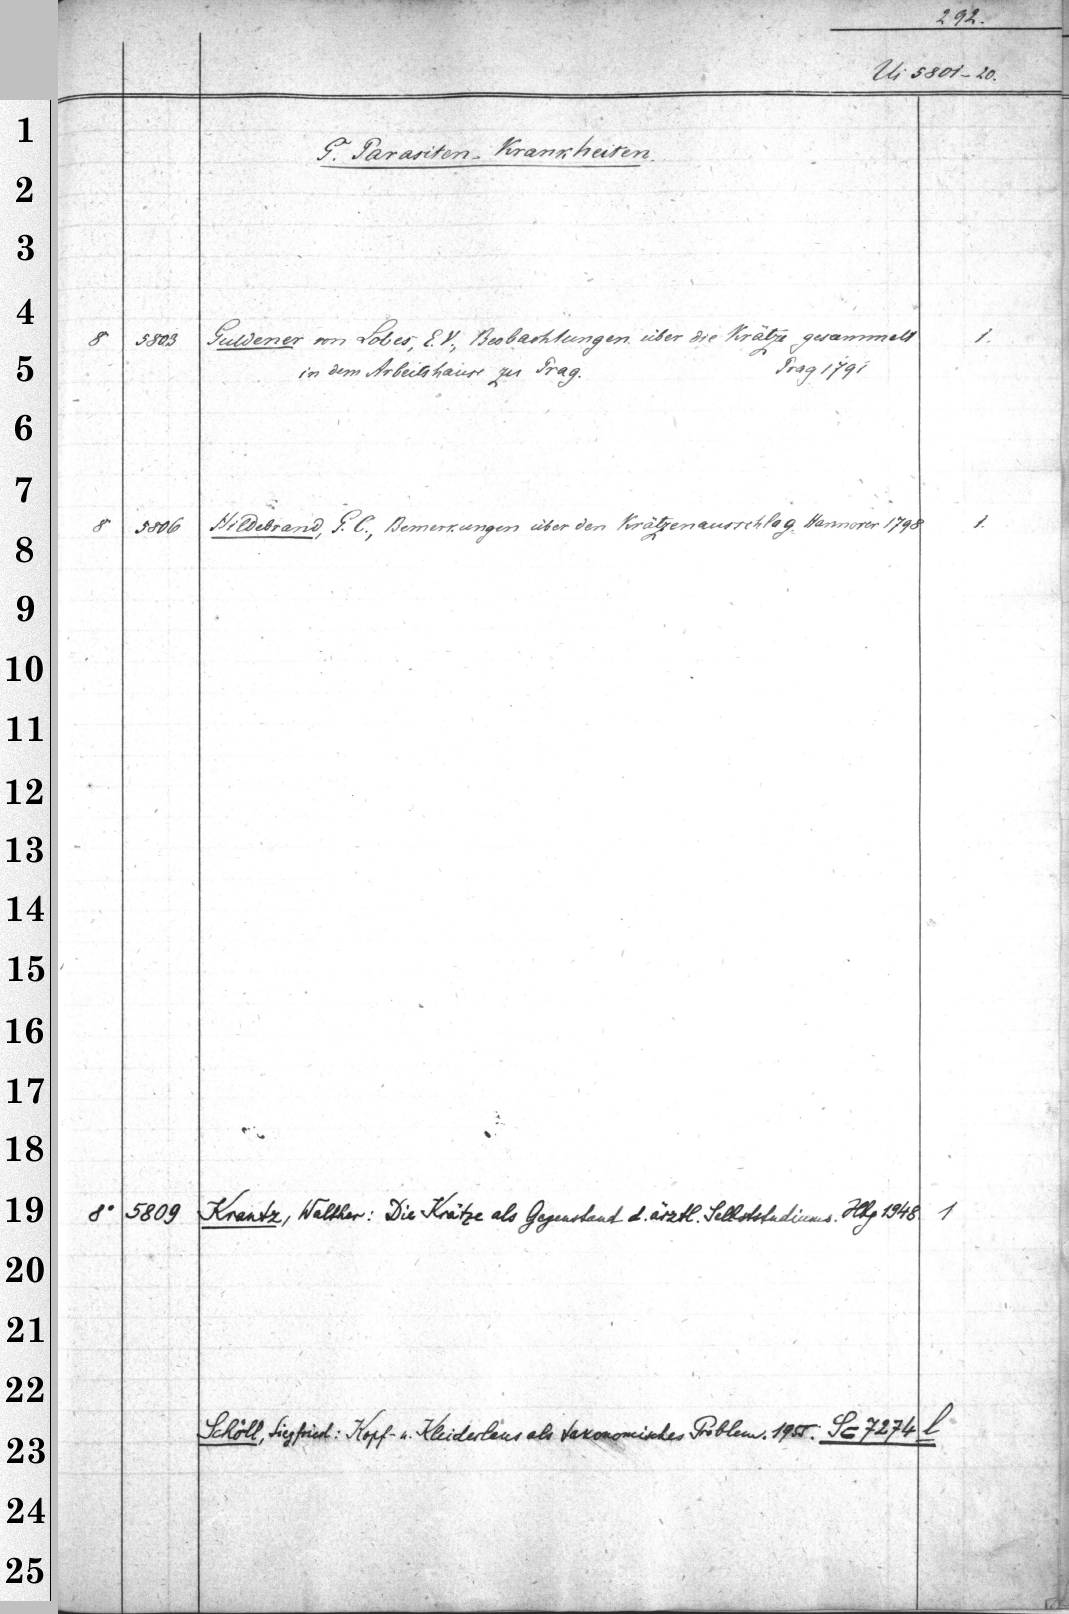 292.
Ui 5801-20.
G. Parasiten-Krankheiten.
8° 5803 Guldener von Lobes, E. V., Beobachtungen über die Krätze gesammelt 1.
in dem Arbeitshause zu Prag. Prag 1791
8° 5806 Hildebrand, G. C., Bemerkungen über den Krätzenausschlag. Hannover 1798 1.
8° 5809 Krantz, Walther: Die Krätze als Gegenstand d. ärztl. Selbststudiums. Hbg 1948. 1
Schöll, Siegfried: Kopf- u. Kleiderlaus als taxonomisches Problem. 1955. S= 7274 l
1
2
3
4
5
6
7
8
9
10
11
12
13
14
15
16
17
18
19
20
21
22
23
24
25